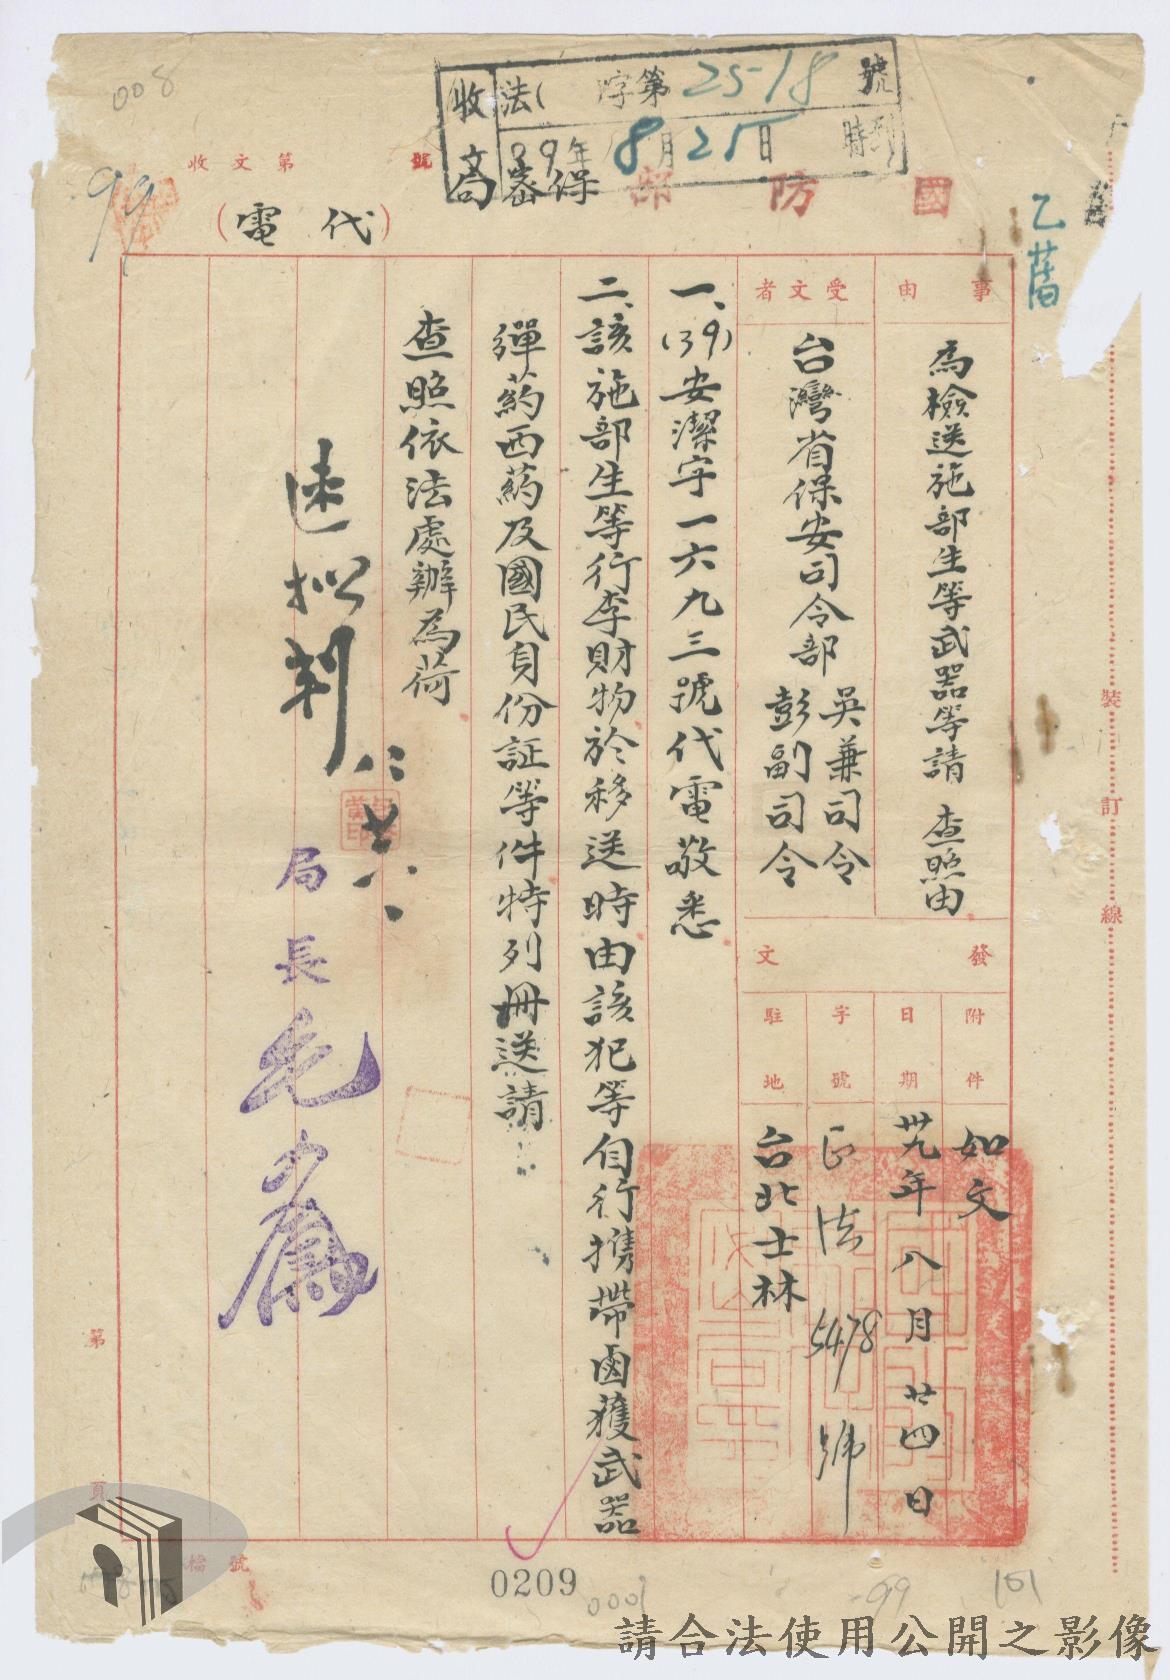 008
收文
法( 字第2518號
39年8月25日 時到
收文第 號
99
國防部
保密局
(代電)
乙舊
事由
為檢送施部生等武器等請 查照由
受文者
台灣省保安司令部 吳兼司令
彭副司令
發文
附件 如文
日期 卅九年八月廿四日
字號 正法5478號
駐地 台北士林
一、(39)安潔字一六九三號代電敬悉
二、該施部生等行李財物於移送時由該犯等自行攜帶鹵獲武器
彈葯西葯及國民身份証等件特列冊送請
查照依法處辦為荷
速擬判 八、廿六、
局長毛人鳳
裝訂線
第 頁
檔號
0209
0001
99
101
請合法使用公開之影像